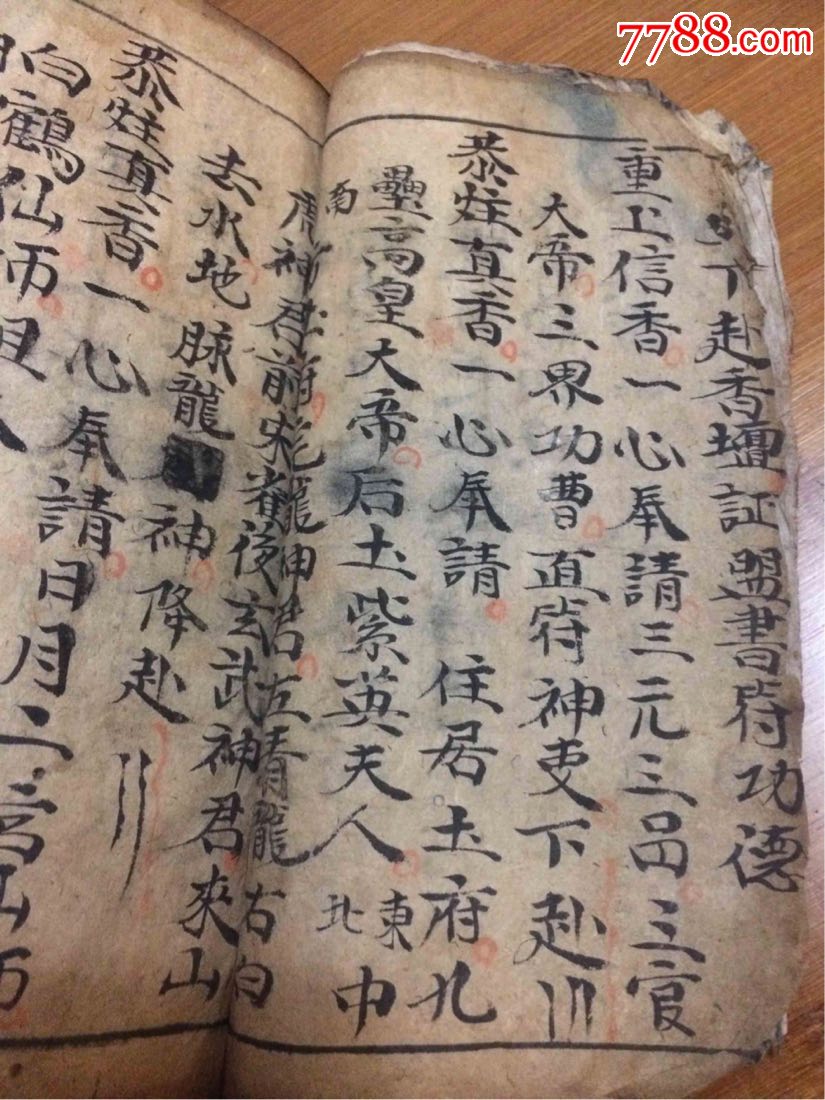 7788.com
下赴香壇証盟書符功德
重上信香一心奉請三元三品三官
大帝三界功曹直符神吏下赴
恭炷真香一心奉請住居土府九
壘高皇大帝后土紫英夫人東北中
南
神君前朱雀後玄武神君來山
土府 龍神君左青龍右白
去水地脉龍神降赴
恭炷真香一心奉請日月二宮
白鶴仙師